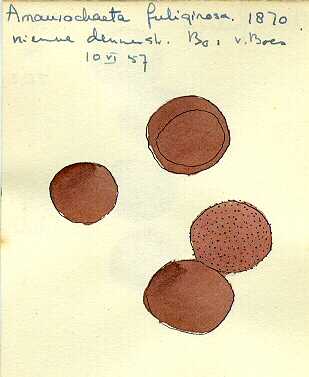 Amaurochaeta fuliginosa. 1870
nieuwe dennenstr. Bo, v. Boes
10 VI 57